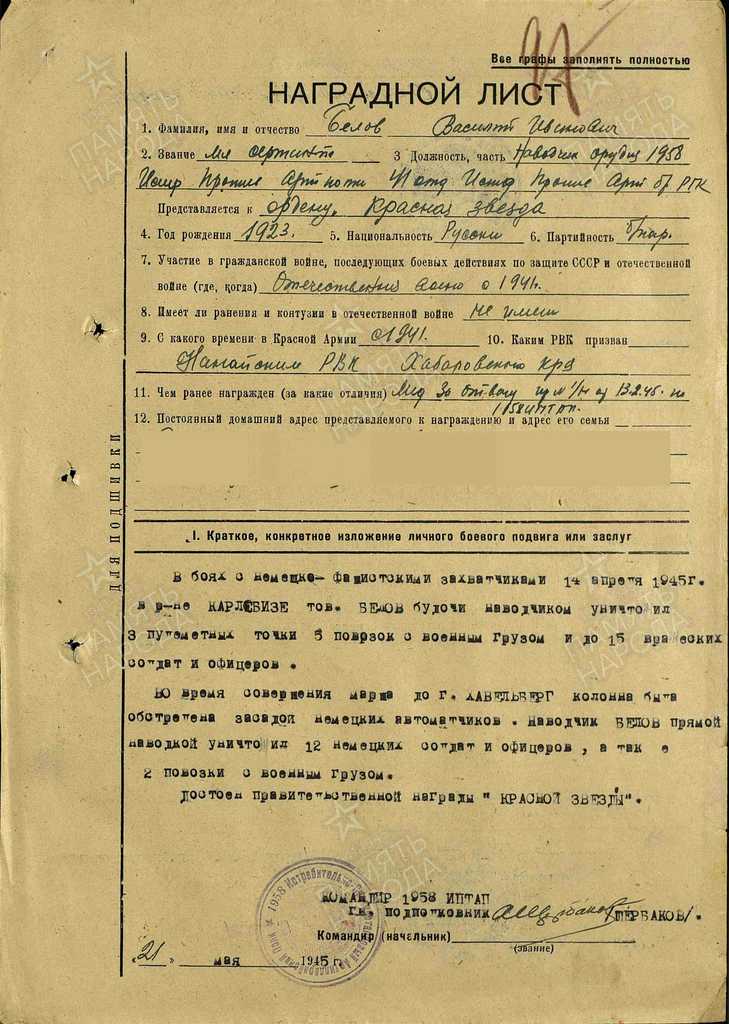 Все графы заполнять полностью
НАГРАДНОЙ ЛИСТ
1. Фамилия, имя и отчество Белов Василий Иванович
2. Звание мл сержант 3 Должность, часть Наводчик орудия 1958
Истр Против Арт полк Истр Против Арт бр РГК
Представляется к ордену „Красная звезда
4. Год рождения 1923. 5. Национальность Русский 6. Партийность б/пар.
7. Участие в гражданской войне, последующих боевых действиях по защите СССР и отечественной
войне (где, когда) Отечественная война с 1941г.
8. Имеет ли ранения и контузии в отечественной войне не имеет
9. С какого времени в Красной Армии с 1941. 10. Каким РВК призван
Нанайским РВК Хабаровского края
11. Чем ранее награжден (за какие отличия) Мед За отвагу пр № 1/н от 13.2.45. по
1958 ИПТАП.
12. Постоянный домашний адрес представляемого к награждению и адрес его семьи
ДЛЯ ПОДШИВКИ
I. Краткое, конкретное изложение личного боевого подвига или заслуг
В боях с немецко-фашистскими захватчиками 14 апреля 1945г.
в р-не КАРЛСБИЗЕ тов. БЕЛОВ будочи наводчиком уничто ил
3 пулеметных точки 5 поврзок с военным грузом и до 15 вражеских
солдат и офицеров.
ВО время совершения марша до г. ХАВЕЛЬБЕРГ колонна была
обстрелена засадой немецких автоматчиков. наводчик БЕЛОВ прямой
наводкой уничтожил 12 немецких солдат и офицеров, а так е
2 повозки с военным грузом.
достоен правительственной награды " КРАСНОЙ ЗВЕЗДЫ".
КОМАНДИР 1958 ИПТАП
Гв. подполковник /ЩЕРБАКОВ/.
Командир (начальник)
(звание)
„21„ мая 1945 г.
1958 Истребительно-Противотанковый Артиллерийский Полк
ПАМЯТЬ НАРОДА